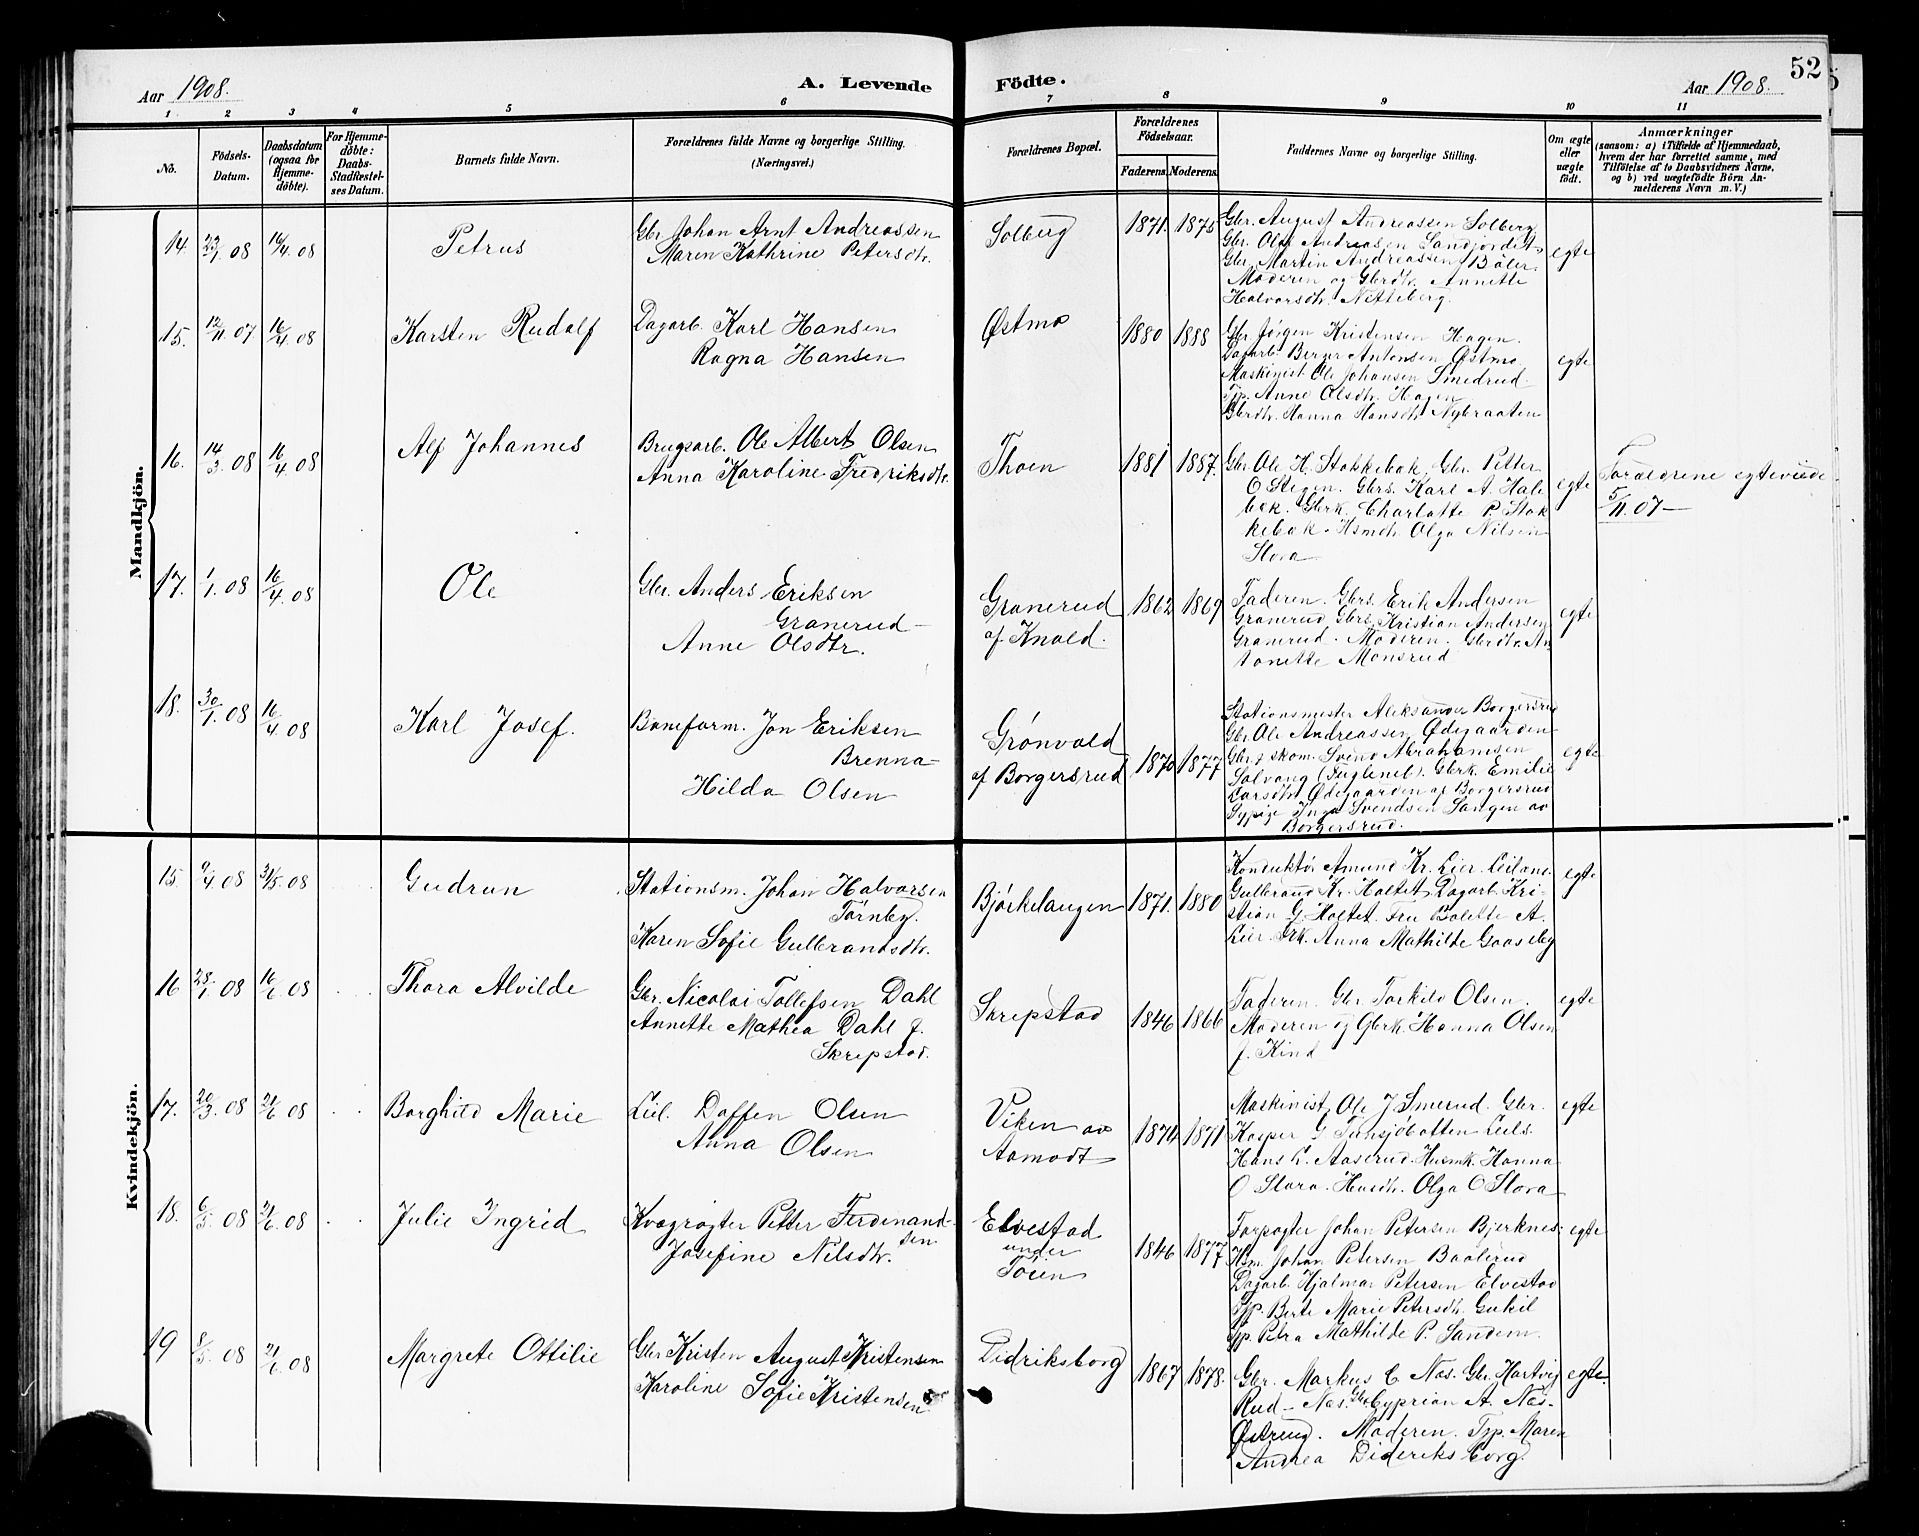 52
Aar 1908.
A. Levende
Födte.
Aar 1908.
1 2 3 4 5 6 7 8 9 10 11
No.
Födsels-
Datum.
Daabsdatum
(ogsaa for
Hjemme-
döbte).
For Hjemme-
döbte:
Daabs-
Stadfæstel-
ses Datum.
Barnets fulde Navn.
Forældrenes fulde Navne og borgerlige Stilling.
(Næringsvei.)
Forældrenes Bopæl.
Forældrenes
Födselsaar.
Faderens. Moderens.
Faddernes Navne og borgerlige Stilling.
Om ægte
eller
uægte
födt.
Anmærkninger
(saasom: a) i Tilfælde af Hjemmedaab,
hvem der har forrettet samme, med
Tilföielse af to Daabsvidners Navne,
og b) ved uægtefödte Börn An-
melderens Navn m. V.)
Mandkjön.
14. 23/1 08 16/4 08
Petrus
Gbr. Johan Arnt Andreassen
Maren Kathrine Petersdtr.
Solberg
1871. 1875
Gbr. August Andreassen Solberg
Gbr. Olaf Andreasen Sandjordet
Gbr. Martin Andreassen Böler
Moderen og Gbrdtr. Annette
Halvorsdtr. Nitteberg.
egte
15. 12/11 07 16/4 08
Karsten Rudolf
Dagarb. Karl Hansen
Ragna Hansen
Østmo
1880 1888
Gbr. Jörgen Kristensen Hagen.
Dagarb. Berger Antonsen Østmo
Maskinist Ole Johansen Smedrud.
Tjp. Anne Olsdtr. Hagen
Gbrdtr. Hanna Hansdtr. Nybraaten
egte
16. 14/3 08 16/4 08
Alf Johannes
Brugsarb. Ole Albert Olsen
Anna Karoline Fredriksdtr.
Thoen
1881 1887.
Gbr. Ole H. Stokkebæk, Gbr. Petter
O Stegen. Gbrs. Karl A. Hale
bæk. Gbrk. Charlotte P. Stok
kebæk. Hsmdtr. Olga Nilsen
Stora
egte
Forældrene egteviede
5/11 07 —
17. 1/1 08 16/4 08
Ole
Gbr. Anders Eriksen
Granerud
Anne Olsdtr.
Granerud
af Knold.
1862 1869
Faderen. Gbrs. Erik Andersen
Granerud Gbrs. Kristian Andersen
Granerud. Moderen. Gbrdtr. An
tonette Monsrud
egte
18. 30/1 08 16/4 08
Karl Josef.
Baneform. Jon Eriksen
Brenna
Hilda Olsen
Grønvold
af Borgersrud
1870 1877
Stationsmester Aleksander Borgersrud
Gbr. Ole Andreassen Ødegaarden
Gbr. & skom. Svend Abrahamsen
Solvang (Fugleneb). Gbrk. Emilie
Larsdtr. Ødegaarden af Borgersrud
Sypige Inga Svendsen Sangen av
Borgersrud.
egte
Kvindekjön.
15. 9/4 08 31/5 08
Gudrun
Stationsm. Johan Halvorsen
Törnby.
Karen Sofie Gulbrandsdtr.
Bjørkelangen
1871. 1880
Konduktör Amund Kr. Lier. Leilænd.
Gulbrand Kr. Holtet, Dagarb. Kri-
stian G. Holtet. Fru Bolette A.
Lier. Gbrk. Anna Mathilde Gaaseby
egte
16 28/1 08 16/6 08
Thora Alvilde
Gbr. Nicolai Tollefsen Dahl
Annette Mathea Dahl f.
Skrepstad.
Skrepstad
1846 1866
Faderen. Gbr. Torkild Olsen.
Moderen og Gbrk. Hanna Olsen
f. Kind
egte
17. 20/3 08 21/6 08
Borghild Marie
Leil. Doffen Olsen
Anna Olsen
Viken av
Aamodt
1874 1871
Maskinist Ole J Smerud. Gbr.
Kasper G. Tunsjöbotten Leils.
Hans L. Aaserud. Husmk. Hanna
O Stora. Husdtr. Olga O Stora
egte
18. 6/5 08 21/6 08
Julie Ingrid
Kvægrögter Petter Ferdinand-
sen
Josefine Nilsdtr.
Elvestad
under
Töien
1846 1877
Forpagter Johan Petersen Bjerknes.
Hsm. Johan Petersen Baalerud
Dagarb. Hjalmar Petersen Elvestad
Tjp. Berte Marie Petersdtr. Gukil
Tjp. Petra Mathilde P. Sandem.
egte
19 8/5 08 21/6 08
Margrete Ottilie
Gbr Kristen August Kristensen
Karoline Sofie Kristensen
Didriksborg
1867 1878.
Gbr. Markus C Næs. Gbr. Hartvig
Rud — Næs. Gbr. Cyprian A. Næs-
Østreng. Moderen. Tjp. Maren
Andrea Dideriksborg.
egte.